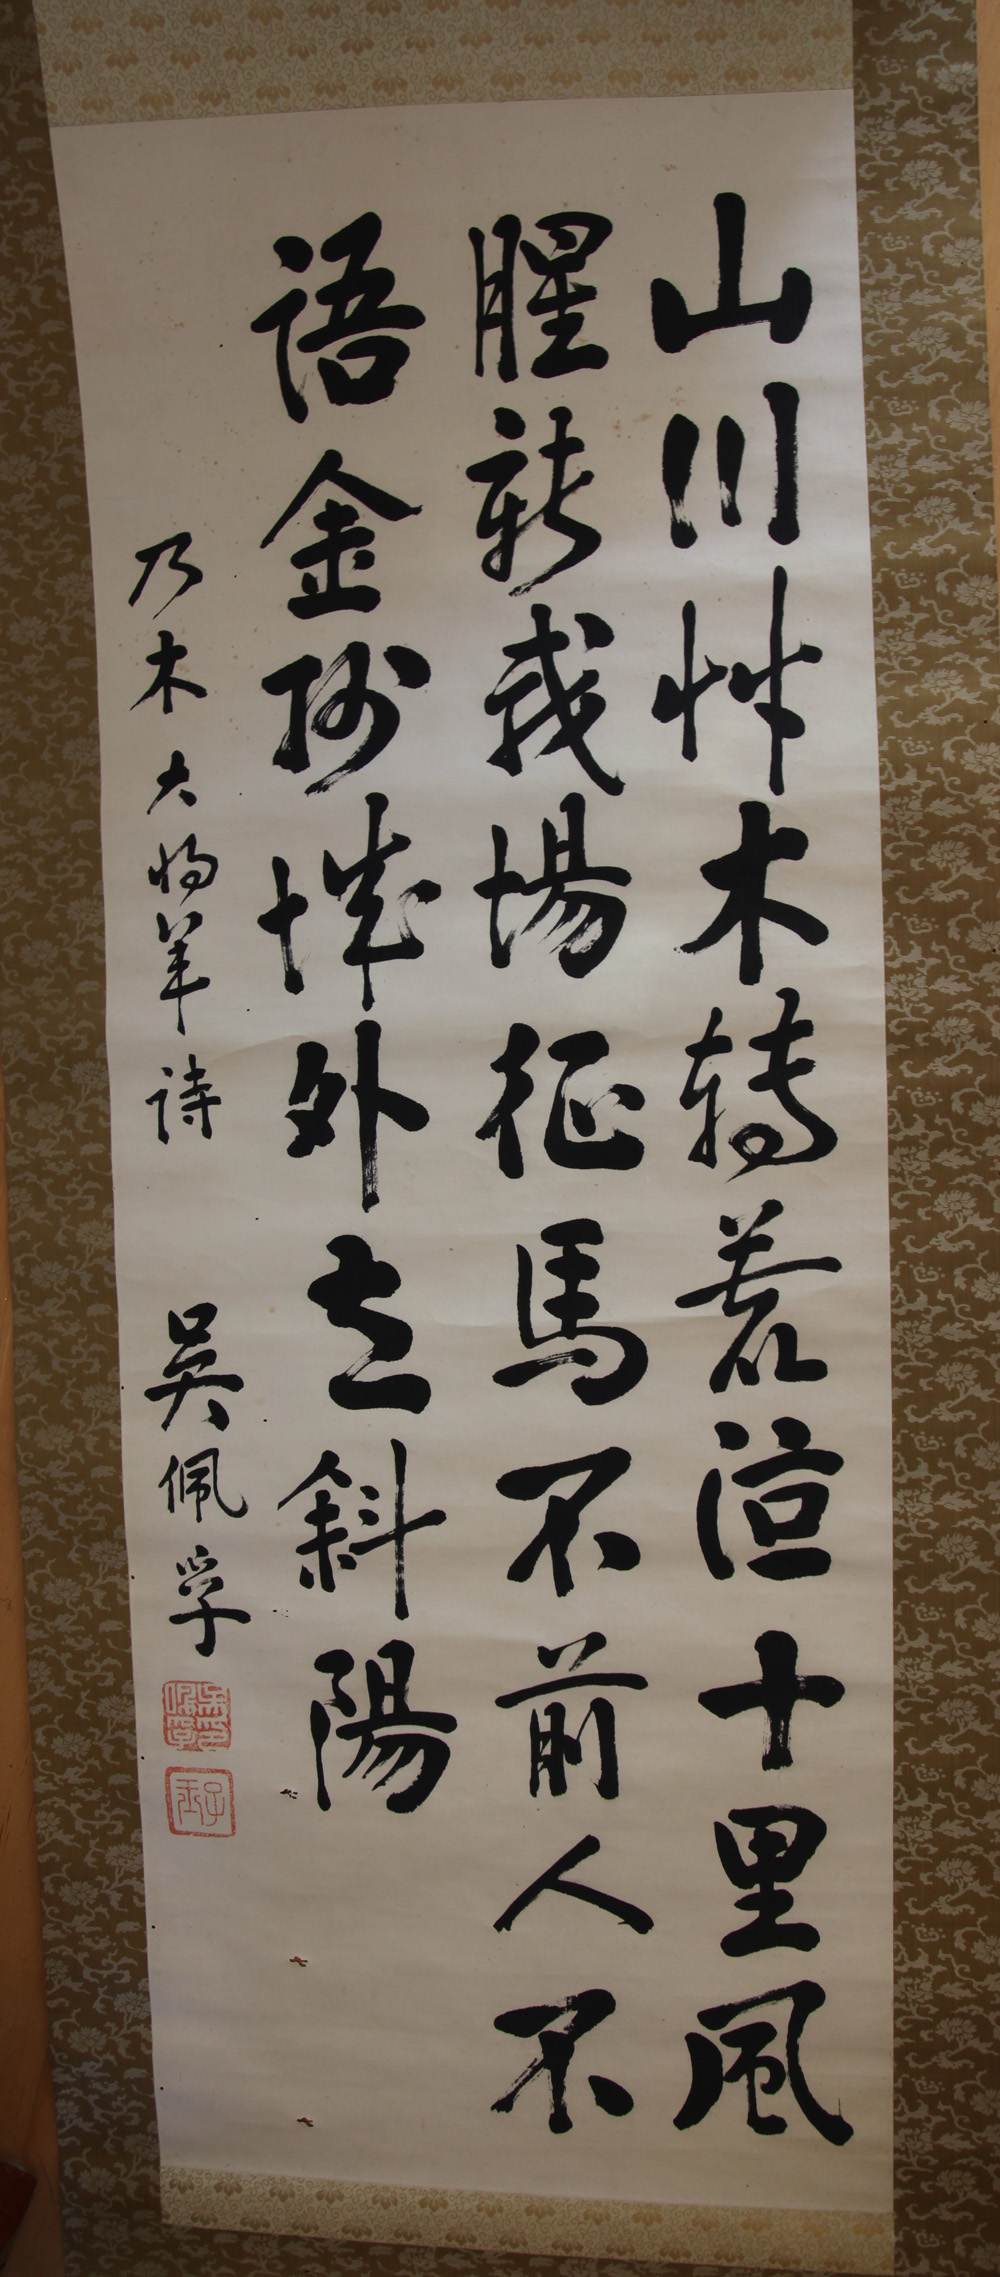 山川艸木轉荒涼十里風
腥新戰場征馬不前人不
語金州城外立斜陽
乃木大将軍詩 吳佩孚
吳佩孚印
子玉